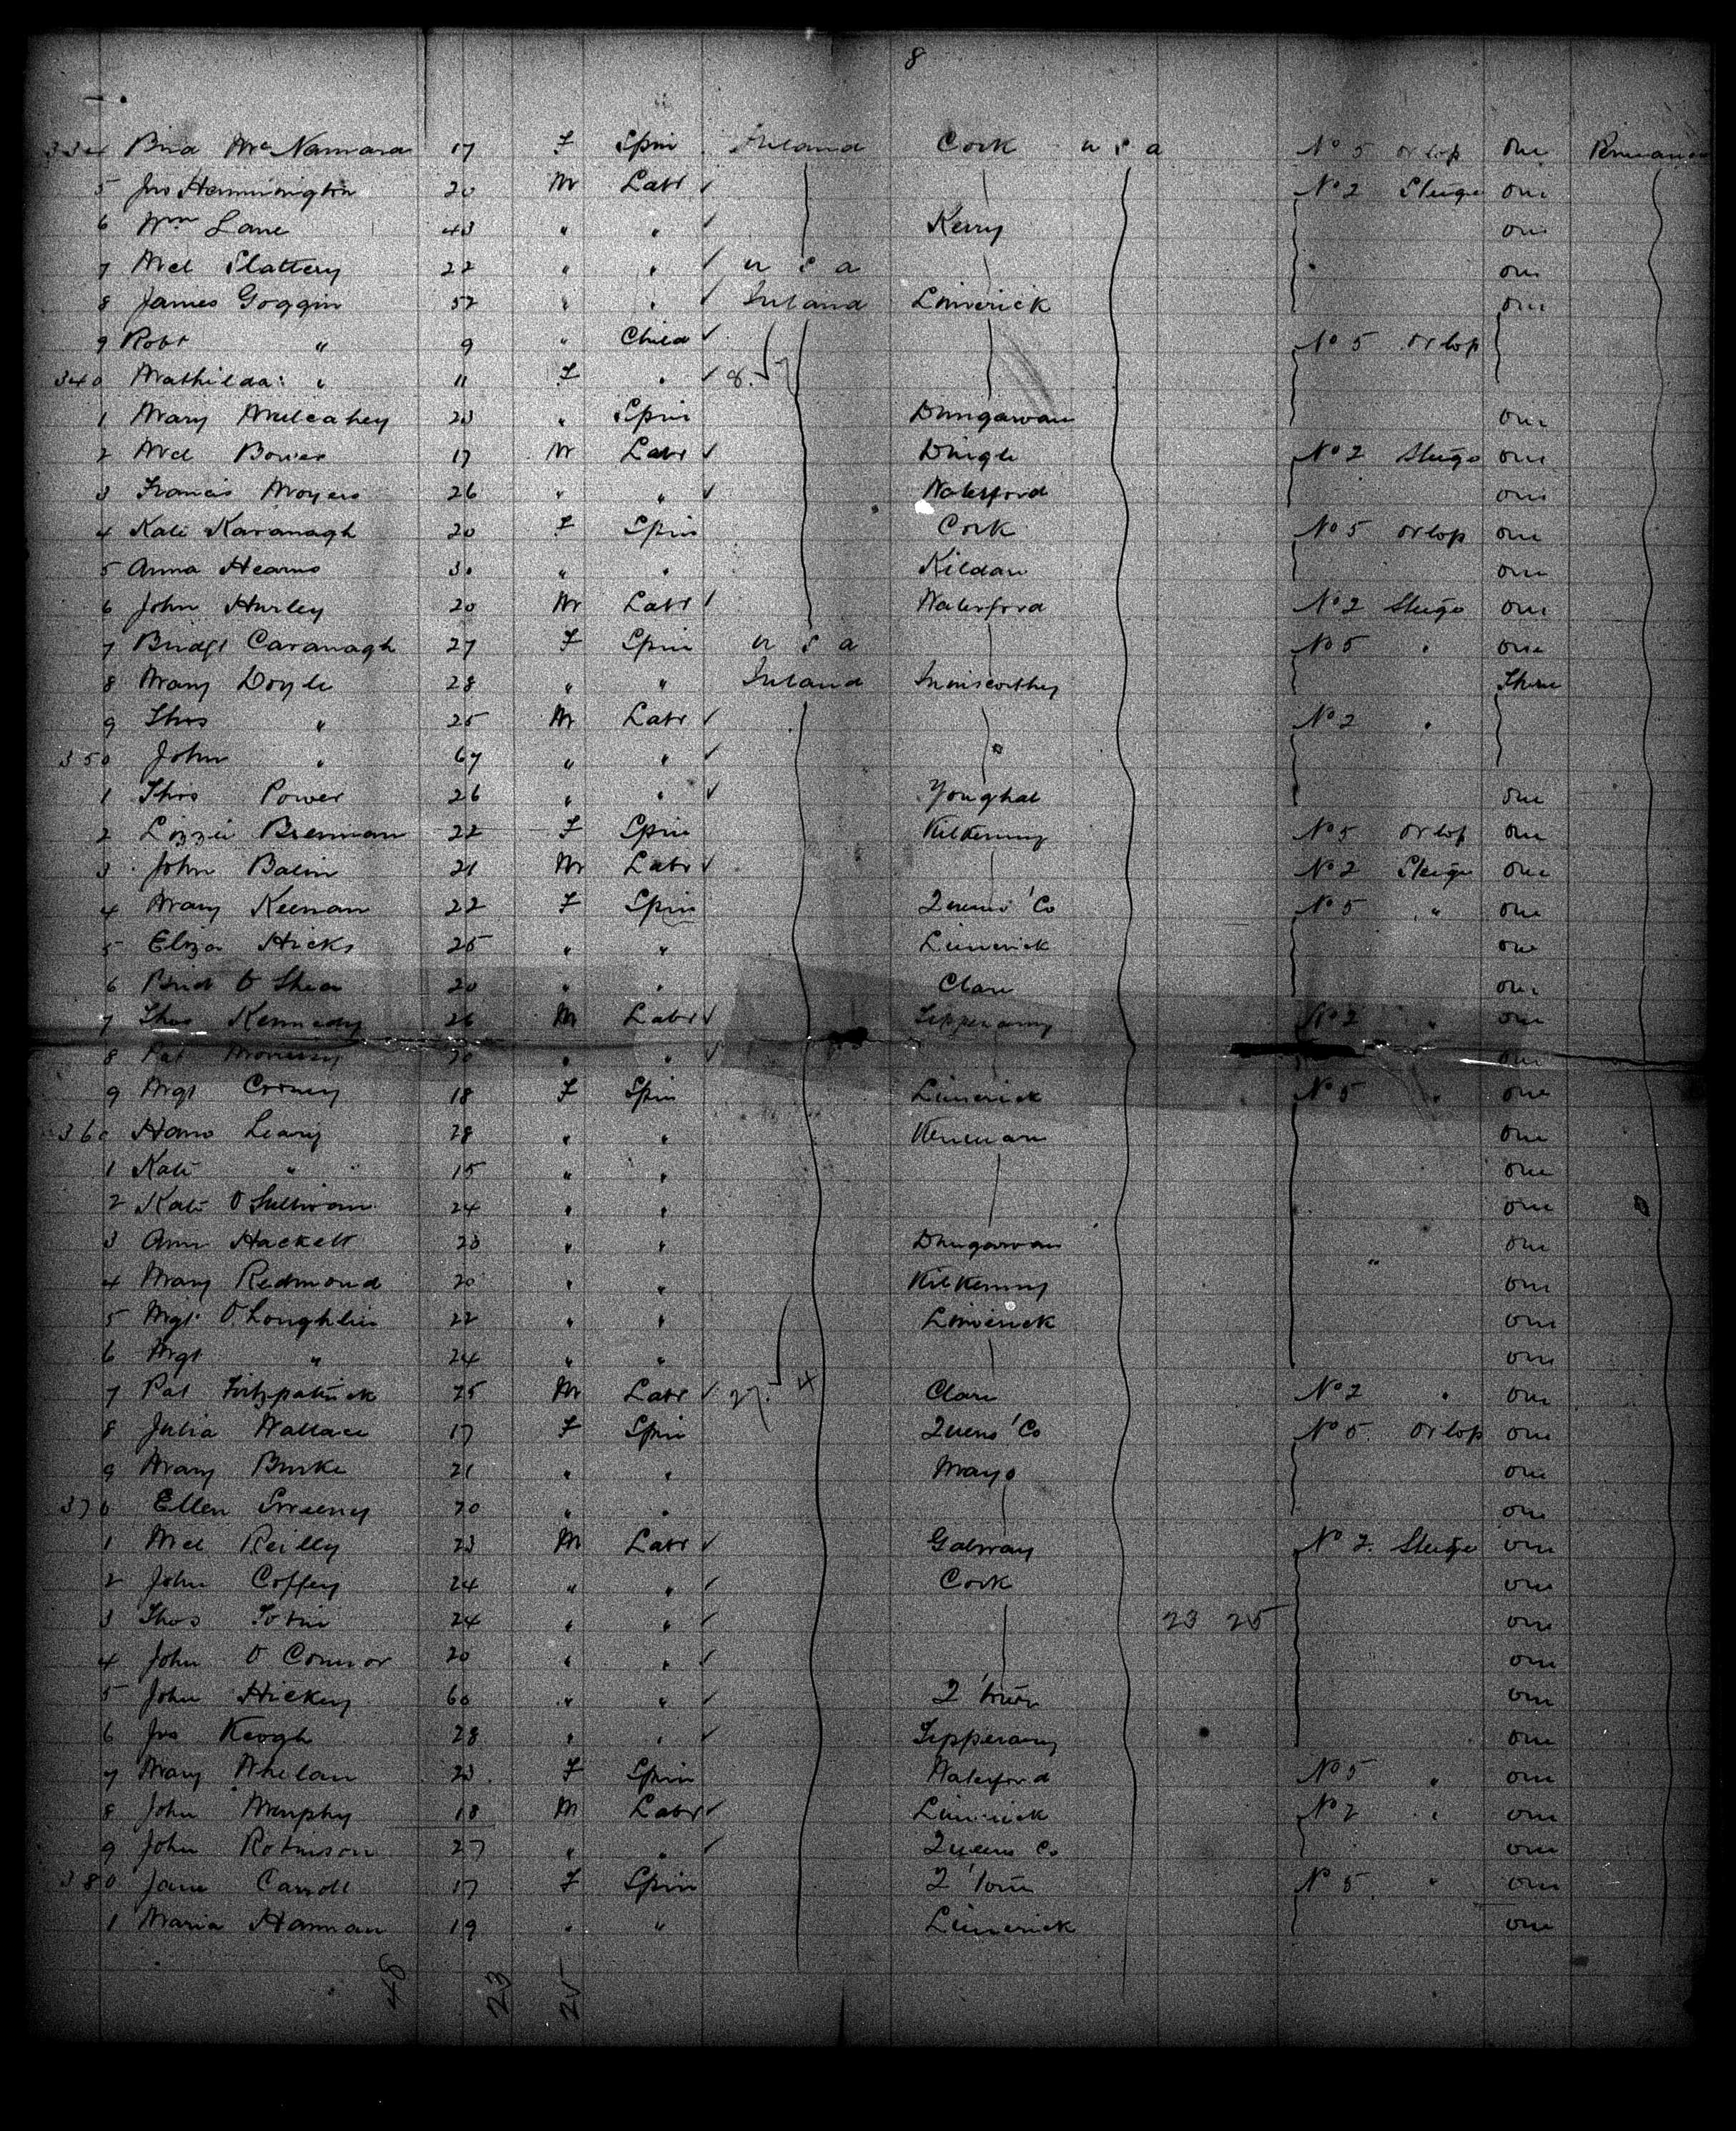 8
334 Brid McNamara 17 F Spin Ireland Cork U S A No 5 Orlop one Permanen
5 Jno Hannington 20 M Labr ✓ No 2 Steige one
6 Wm Lane 43 " " ✓ Kerry one
7 Mcl Slattery 22 " " ✓ U S A one
8 James Goggin 52 " " ✓ Ireland Limerick one
9 Robt " 9 " Child ✓ No 5 Orlop
340 Mathilda " 11 F " ✓ 8
1 Mary Mulcahey 23 " Spin Dungarvan one
2 Mcl Bower 17 M Labr ✓ Dingle No 2 Steige one
3 Francis Moyers 26 " " ✓ Waterford one
4 Kate Kavanagh 20 F Spin Cork No 5 Orlop one
5 Anna Hearns 30 " " Kildare one
6 John Hurley 20 M Labr ✓ Waterford No 2 Steige one
7 Bridgt Cavanagh 27 F Spin U S A No 5 " one
8 Mary Doyle 28 " " Ireland Inniscorthy Three
9 Thos " 25 M Labr ✓ No 2 "
350 John " 67 " " ✓
1 Thos Power 26 " " ✓ Youghal one
2 Lizzie Brennan 22 F Spin Kilkenny No 5 Orlop one
3 John Balin 21 M Labr ✓ No 2 Steige one
4 Mary Keenan 22 F Spin Queens' Co No 5 " one
5 Eliza Hicks 25 " " Limerick one
6 Brid O Shea 20 " " Clare one
7 Thos Kennedy 26 M Labr ✓ Tipperary No 2 " one
8 Pat Morrissy 20 " " ✓ one
9 Mgt Croney 18 F Spin Limerick No 5 " one
360 Hano Leary 28 " " Kenmare one
1 Kate " 15 " " one
2 Kate O Sullivan 24 " " one
3 Ann Hackett 23 " " Dungarvan one
4 Mary Redmond 20 " " Kilkenny " one
5 Mgt O Loughlin 22 " " Limerick one
6 Mgt " 24 " " one
7 Pat Fitzpatrick 25 M Labr ✓ 27 4 Clare No 2 " one
8 Julia Wallace 17 F Spin Queens' Co No 5 Orlop one
9 Mary Burke 21 " " Mayo one
370 Ellen Sweeney 20 " " one
1 Mcl Reilly 23 M Labr ✓ Galway No 2 Steige one
2 John Coffey 24 " " ✓ Cork one
3 Thos Tobin 24 " " ✓ 23 25 one
4 John O Connor 20 " " ✓ one
5 John Hickey 60 " " ✓ Q'town one
6 Jno Keogh 28 " " ✓ Tipperary one
7 Mary Whelan 23 F Spin Waterford No 5 " one
8 John Murphy 18 M Labr ✓ Limerick No 2 " one
9 John Robinson 27 " " ✓ Queens Co one
380 Jane Carroll 17 F Spin Q'town No 5 " one
1 Maria Hannan 19 " " Limerick one
48 23 25